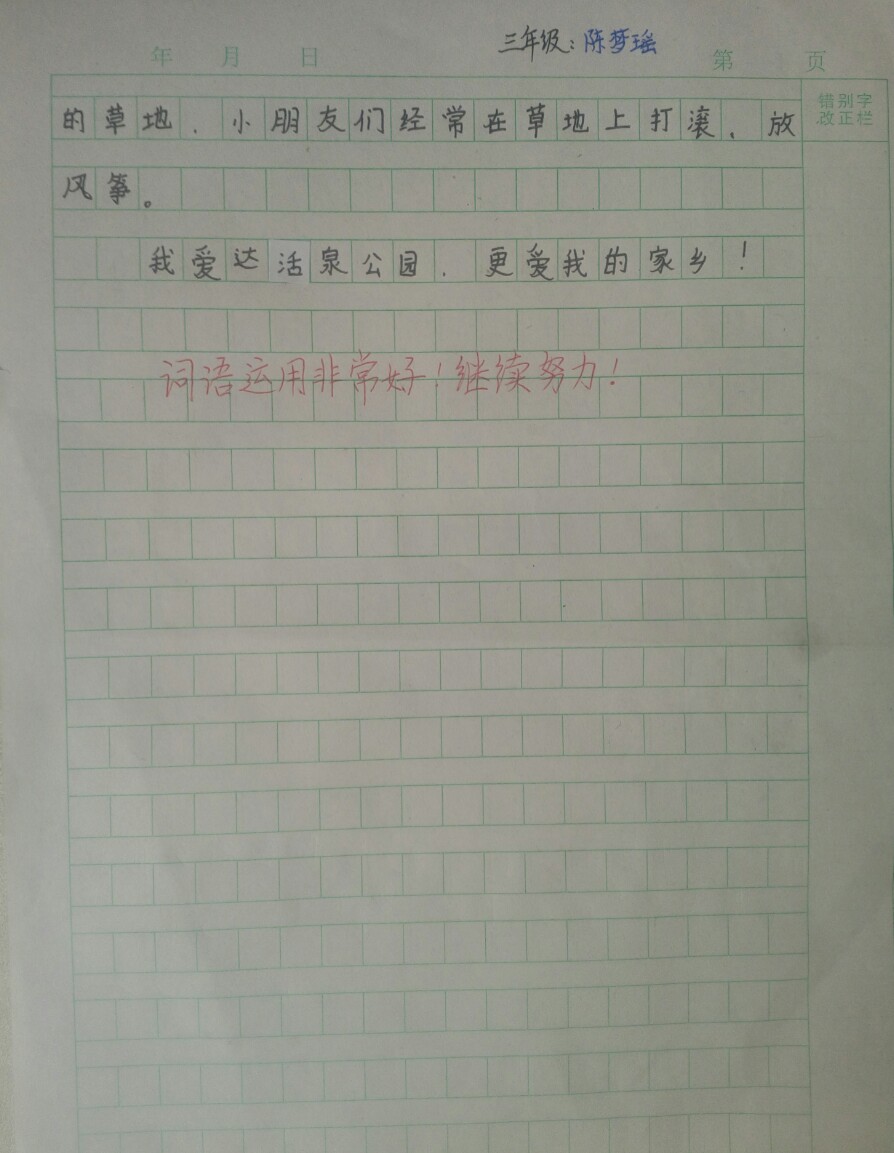 三年级：陈梦瑶
年 月 日 第 页
错别字
改正栏
的草地，小朋友们经常在草地上打滚、放
风筝。
我爱达活泉公园，更爱我的家乡！
词语运用非常好！继续努力！